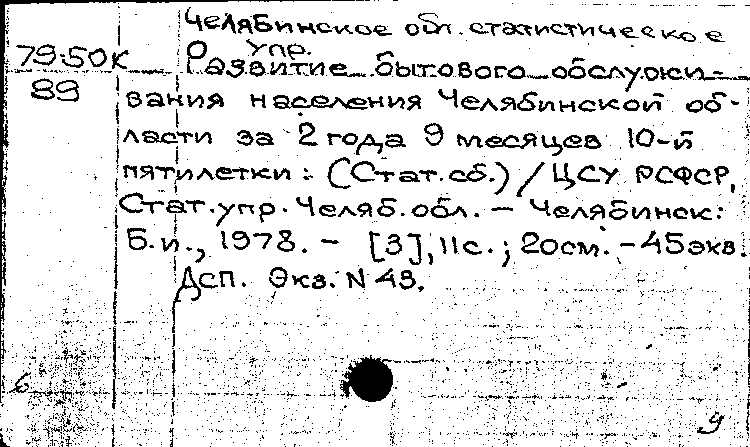 Челябинское обл. статистическое
упр.
79-50к Развитие бытового обслужи-
89 вания населения Челябинской об-
ласти за 2 года 9 месяцев 10-й
пятилетки: (Стат.сб.) / ЦСУ РСФСР,
Стат.упр. Челяб.обл. - Челябинск:
Б.и., 1978. - [3], 11с.; 20см. - 45экз.
ДСП. Экз. N 43.
6
9